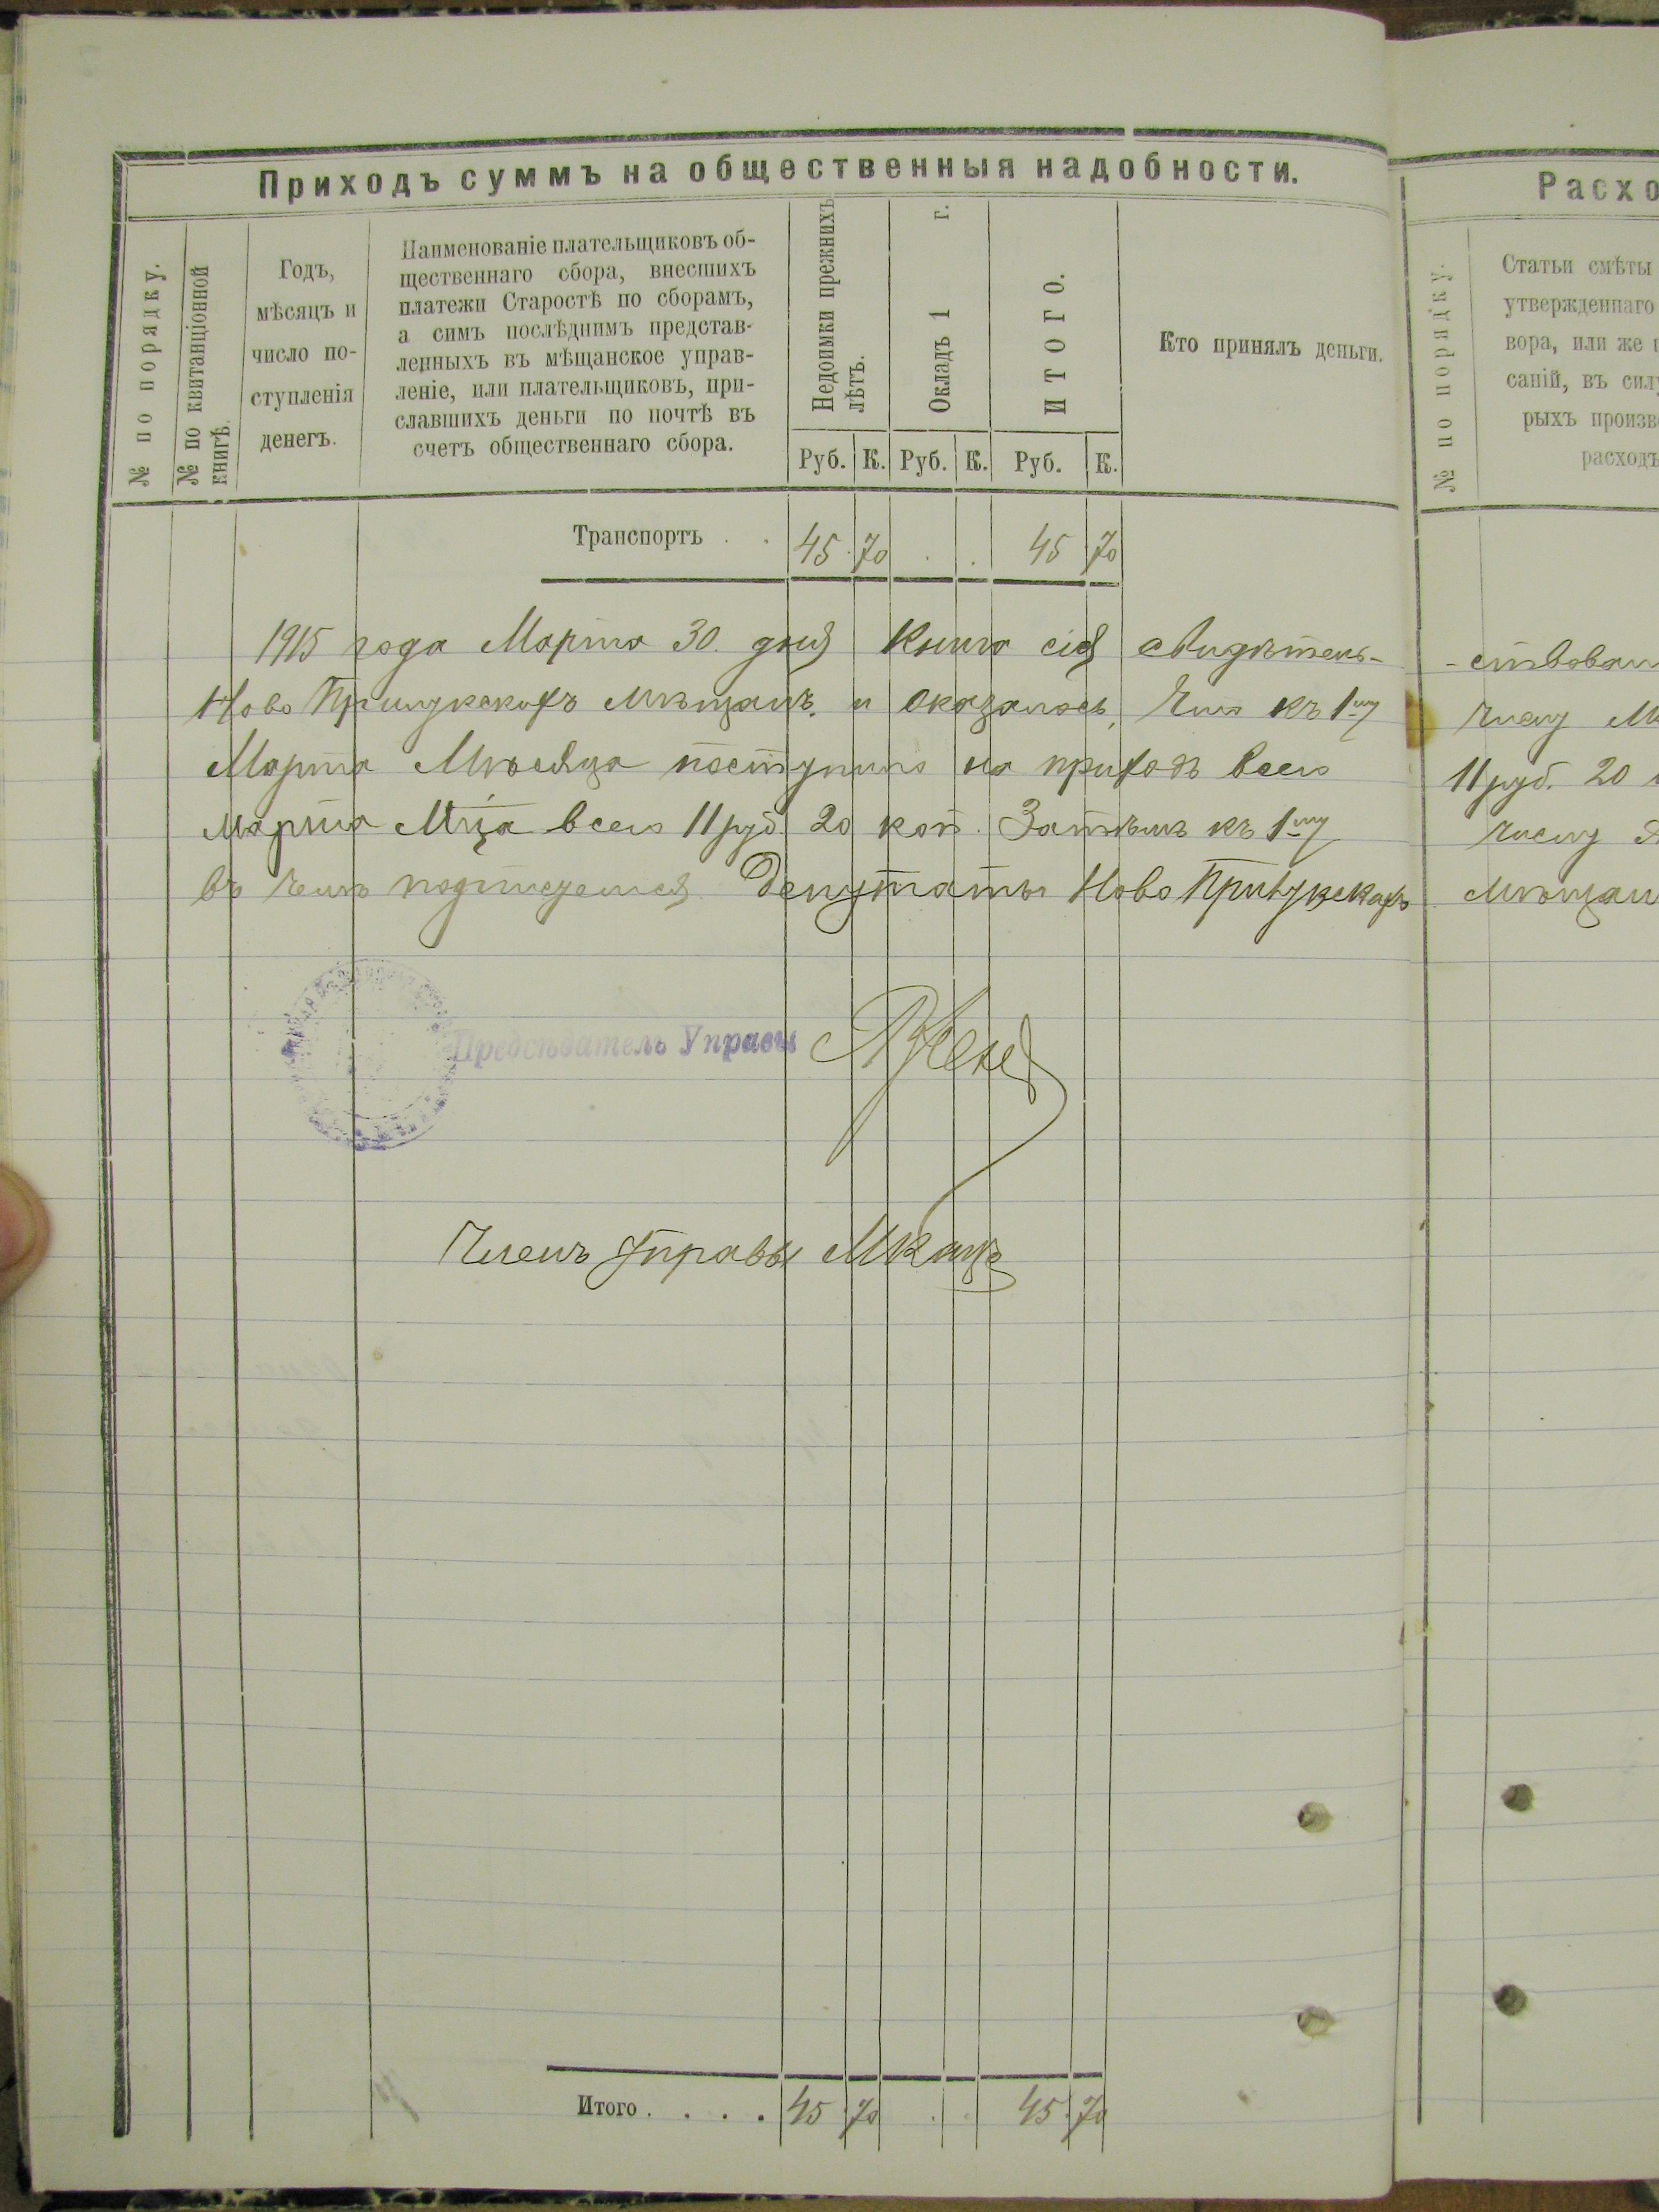 Приходъ суммъ на общественныя надобности.
№ по порядку.
№ по квитанціонной
книгѣ.
Годъ,
мѣсяцъ и
число по-
ступленія
денегъ.
Наименованіе плательщиковъ об-
щественнаго сбора, внесшихъ
платежи Старостѣ по сборамъ,
а симъ послѣднимъ представ-
ленныхъ въ мѣщанское управ-
леніе, или плательщиковъ, при-
славшихъ деньги по почтѣ въ
счетъ общественнаго сбора.
Недоимки прежнихъ
лѣтъ.
Окладъ 1 г.
ИТОГО.
Руб. К. Руб. К. Руб. К.
Кто принялъ деньги.
Транспортъ . . 45 70 . . 45 70
1915 года Марта 30. дня Книга сія свидѣтель-
Ново Прилукскихъ мѣщанъ. и оказалось, что къ 1му
Марта Мѣсяца поступило на приходъ всего
марта Мца всего 11 руб. 20 коп. Затѣмъ къ 1му
въ чемъ подписуемся Депутаты Ново Прилукскихъ
Предсѣдатель Управы
Членъ Управы МКацъ
Итого . . . . 45 70 . . 45 70
Расхо
№ по порядку.
Статьи смѣты
утвержденнаго
вора, или же п
саній, въ силу
рыхъ произв
расходъ
-ствован
числу М
11 руб. 20
числу
мѣщан